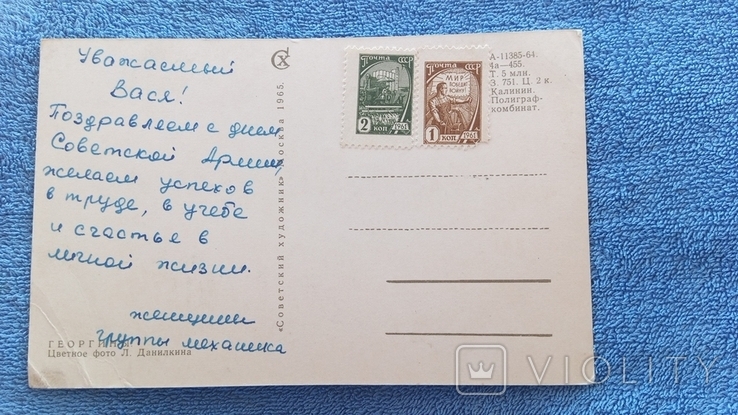 Уважаемый
Вася!
Поздравляем с днем
Советской Армии,
желаем успехов
в труде, в учебе
и счастье в
личной жизни.
женщины
группы механика
ГЕОРГИНЫ
Цветное фото Л. Данилкина
«Советский художник» Москва 1965.
ПОЧТА СССР
2 КОП
1961
ПОЧТА СССР
МИР
ПОБЕДИТ
ВОЙНУ!
1 КОП
1961
А-11385-64.
4а—455.
Т. 5 млн.
З. 751. Ц. 2 к.
Калинин.
Полиграф-
комбинат.
VIOLITY